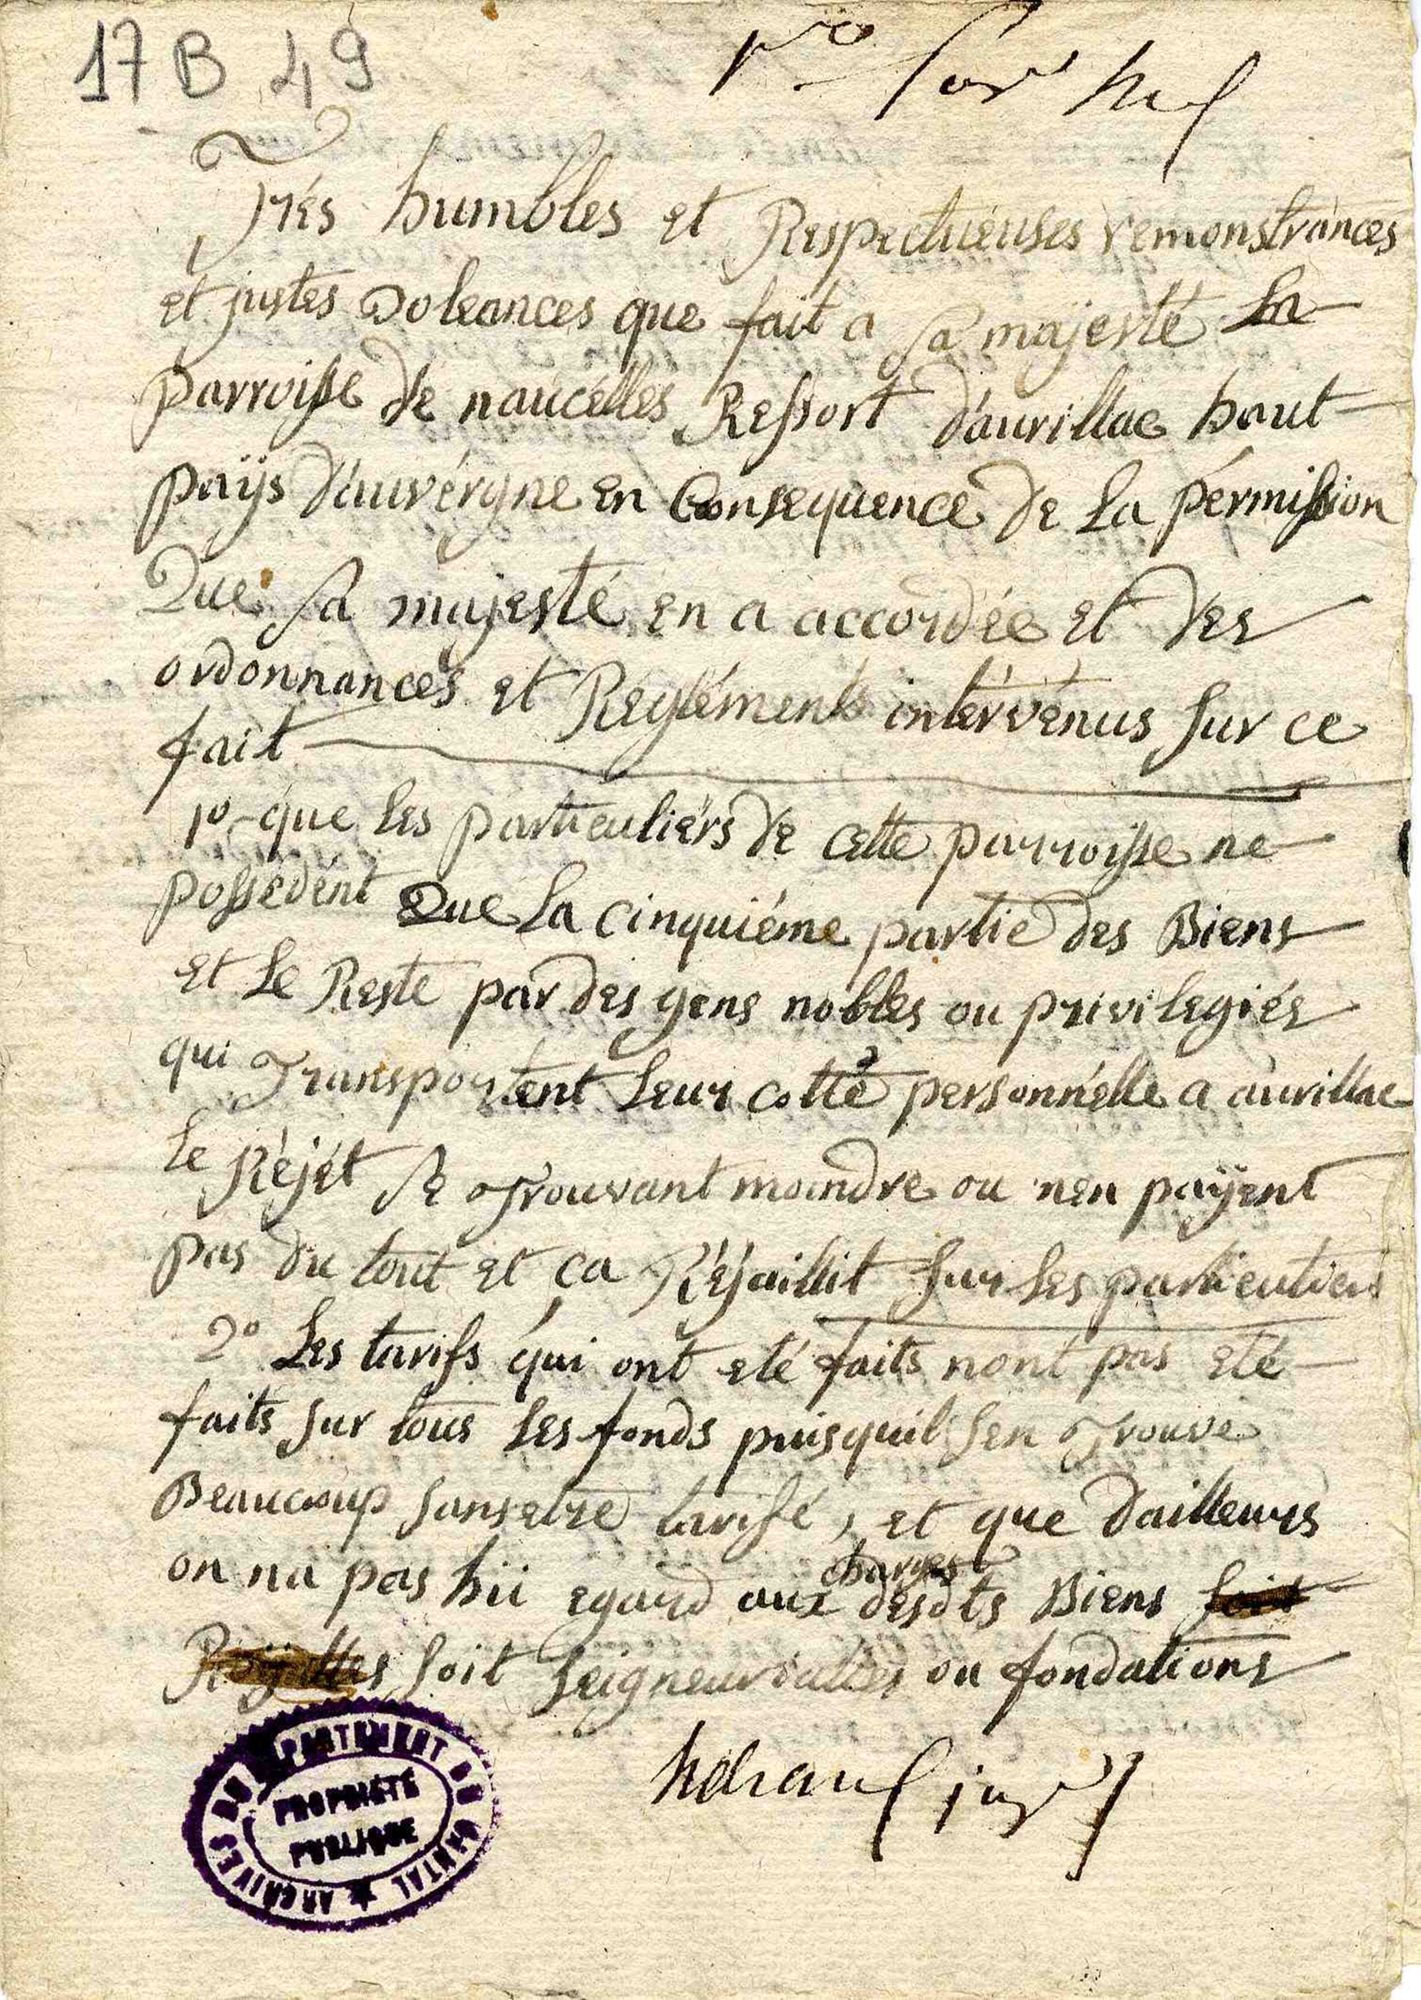 17 B 49
Trés humbles et Respectueuses remonstrances
et justes Doleances que fait a sa majesté la
parroisse de naucelles Ressort d'aurillac haut
païjs d'auvérgne en Consequence de La pérmission
Que sa majesté en a accordée et des
ordonnances et Regléments intérvénus sur ce
fait
1º que les particuliérs de cette parroisse ne
possedént Que La cinquiéme partie des Biens
et Le Reste par des gens nobles ou privilegiés
qui Transportent Leur cotte personnélle a aurillac
Le Réjét se Trouvant moindre ou nen payent
pas du tout et ca Réjaillit sur Les particuliers
2º Les tarifs qui ont eté faits nont pas eté
faits sur tous Les fonds puisquil sen Trouve
Beaucoup sans etre tarifé, et que dailleurs
on na pas hü egard aux desdts Biens soit
charges
Royalles soit seigneurialles ou fondations
ARCHIVES DU DÉPARTEMENT DU CANTAL
PROPRIÉTÉ
PUBLIQUE